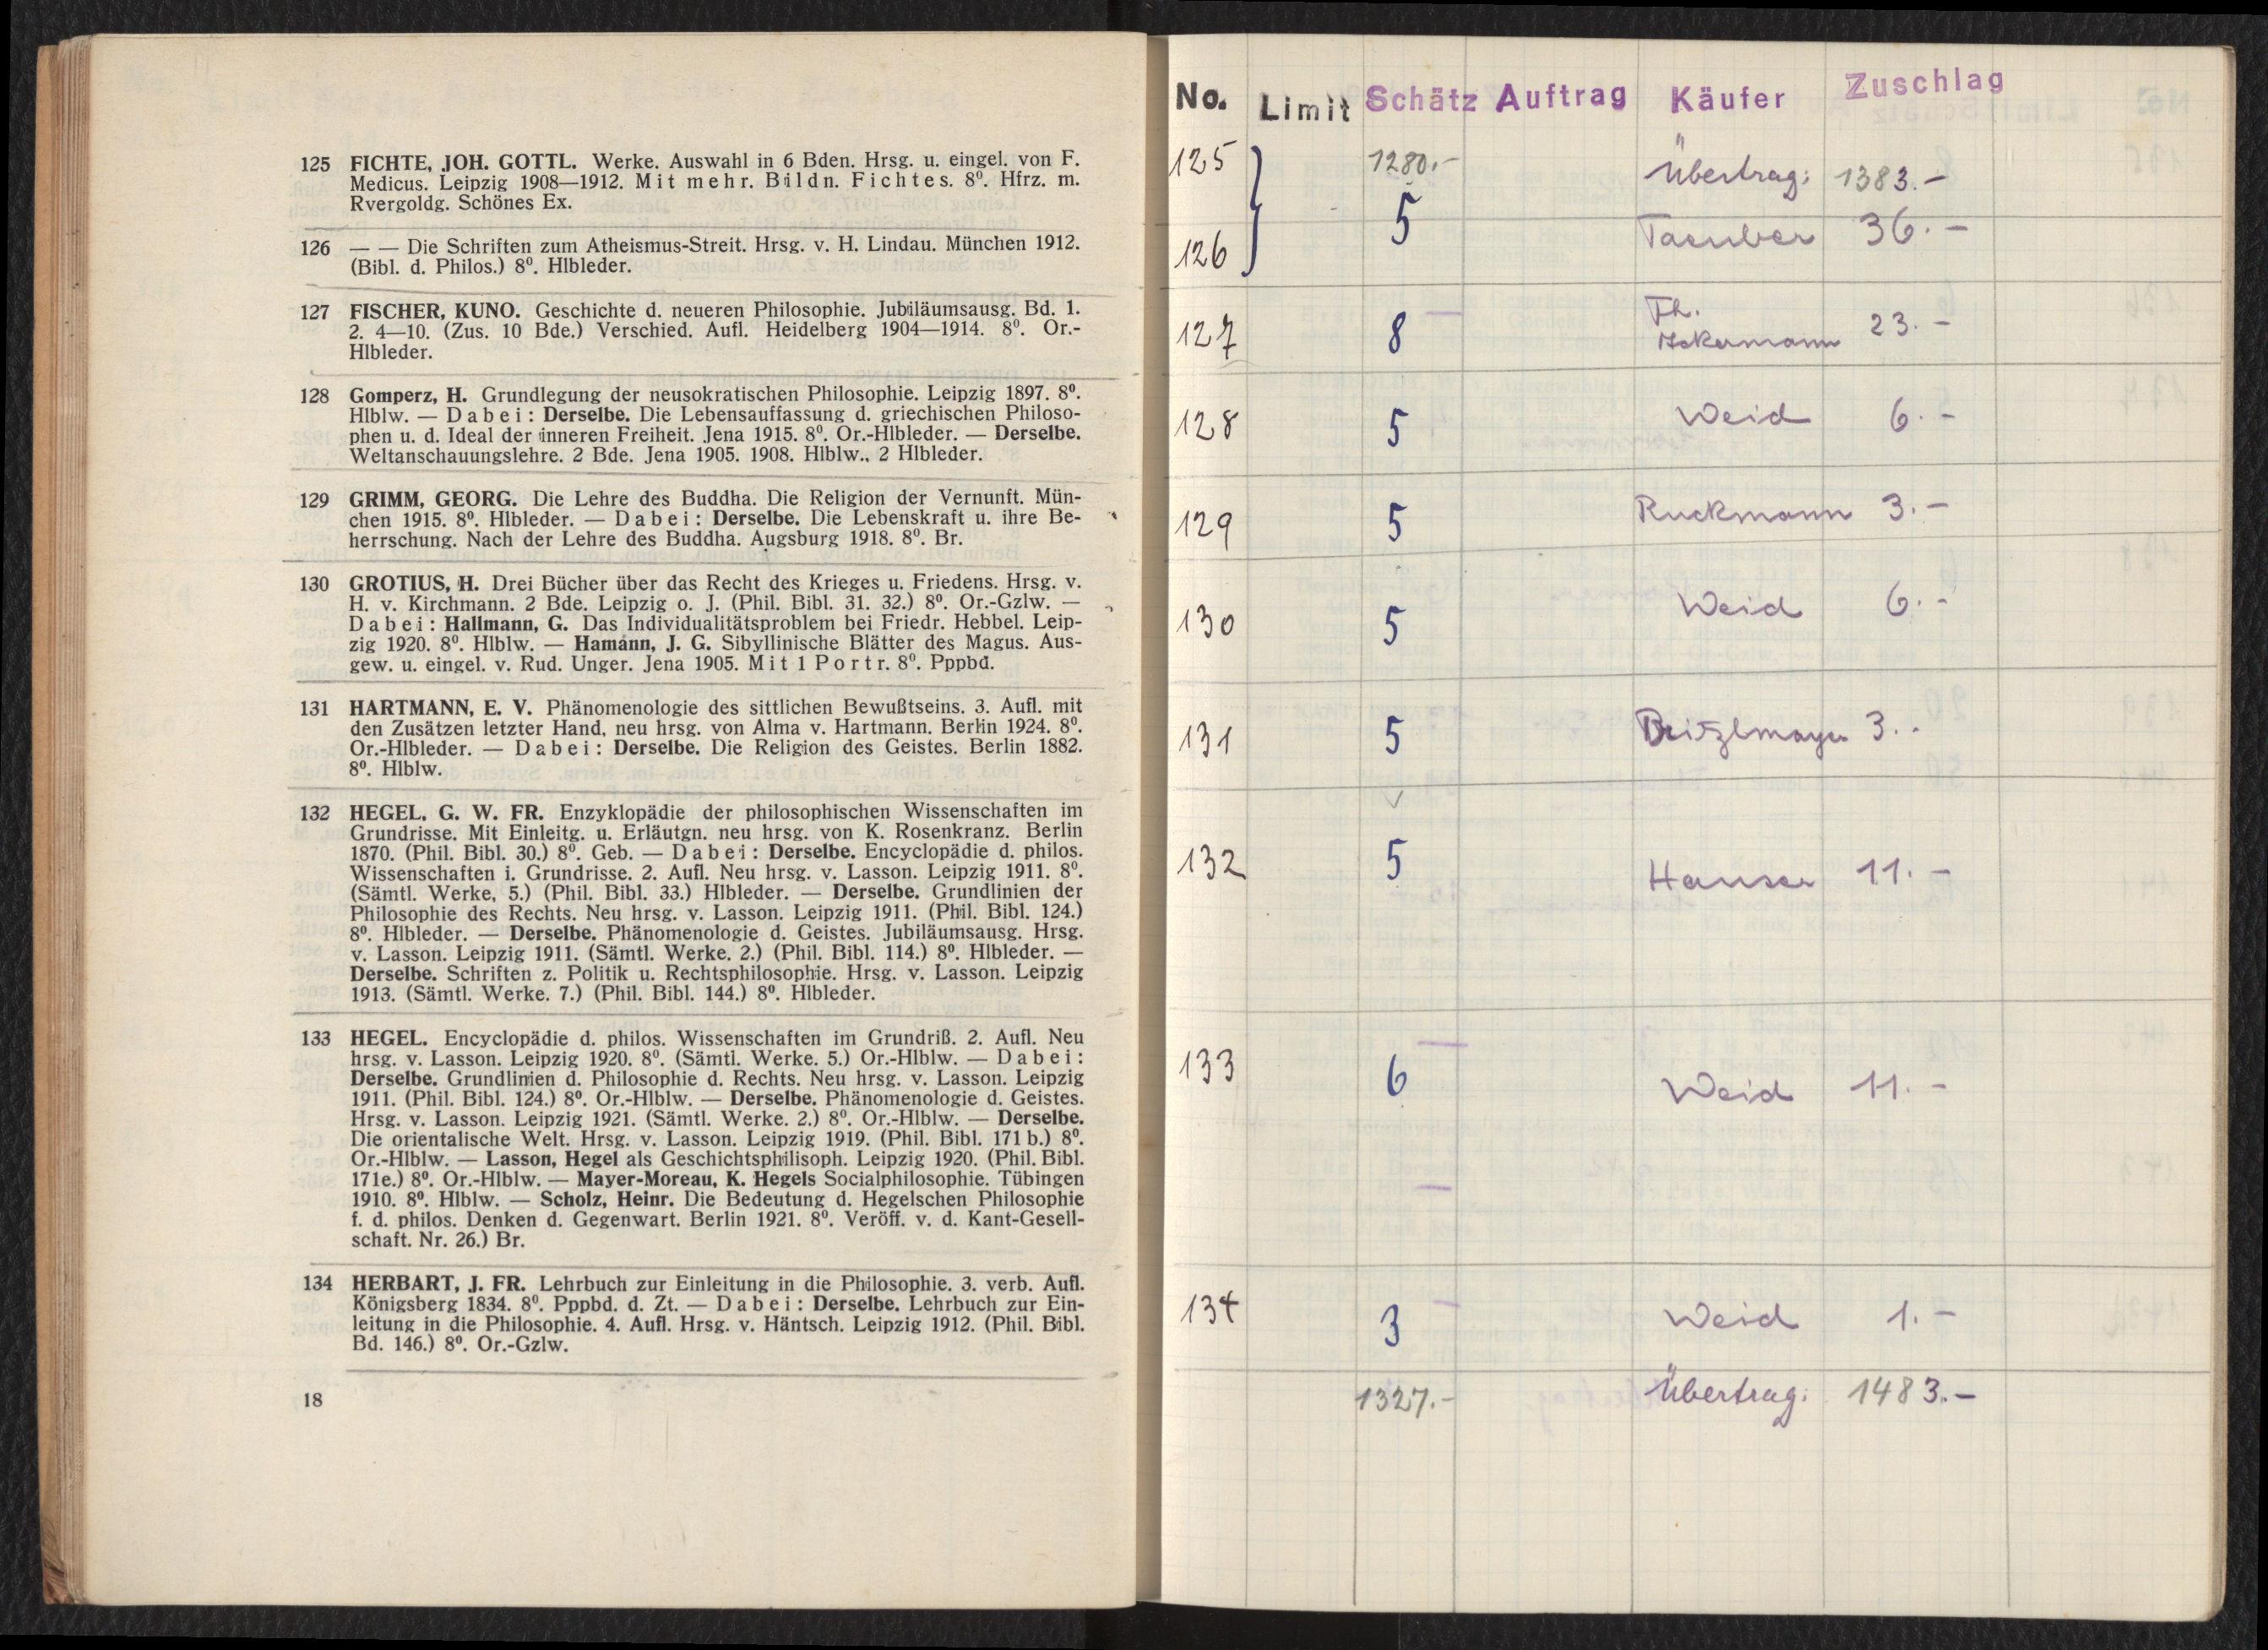 125 FICHTE, JOH. GOTTL. Werke. Auswahl in 6 Bden. Hrsg. u. eingel. von F.
Medicus. Leipzig 1908—1912. Mit mehr. Bildn. Fichtes. 8⁰. Hfrz. m.
Rvergoldg. Schönes Ex.
126 — — Die Schriften zum Atheismus-Streit. Hrsg. v. H. Lindau. München 1912.
(Bibl. d. Philos.) 8⁰. Hlbleder.
127 FISCHER, KUNO. Geschichte d. neueren Philosophie. Jubiläumsausg. Bd. 1.
2. 4—10. (Zus. 10 Bde.) Verschied. Aufl. Heidelberg 1904—1914. 8⁰. Or.-
Hlbleder.
128 Gomperz, H. Grundlegung der neusokratischen Philosophie. Leipzig 1897. 8⁰.
Hlblw. — Dabei: Derselbe. Die Lebensauffassung d. griechischen Philoso-
phen u. d. Ideal der inneren Freiheit. Jena 1915. 8⁰. Or.-Hlbleder. — Derselbe.
Weltanschauungslehre. 2 Bde. Jena 1905. 1908. Hlblw., 2 Hlbleder.
129 GRIMM, GEORG. Die Lehre des Buddha. Die Religion der Vernunft. Mün-
chen 1915. 8⁰. Hlbleder. — Dabei: Derselbe. Die Lebenskraft u. ihre Be-
herrschung. Nach der Lehre des Buddha. Augsburg 1918. 8⁰. Br.
130 GROTIUS, H. Drei Bücher über das Recht des Krieges u. Friedens. Hrsg. v.
H. v. Kirchmann. 2 Bde. Leipzig o. J. (Phil. Bibl. 31. 32.) 8⁰. Or.-Gzlw. —
Dabei: Hallmann, G. Das Individualitätsproblem bei Friedr. Hebbel. Leip-
zig 1920. 8⁰. Hlblw. — Hamann, J. G. Sibyllinische Blätter des Magus. Aus-
gew. u. eingel. v. Rud. Unger. Jena 1905. Mit 1 Portr. 8⁰. Pppbd.
131 HARTMANN, E. V. Phänomenologie des sittlichen Bewußtseins. 3. Aufl. mit
den Zusätzen letzter Hand, neu hrsg. von Alma v. Hartmann. Berlin 1924. 8⁰.
Or.-Hlbleder. — Dabei: Derselbe. Die Religion des Geistes. Berlin 1882.
8⁰. Hlblw.
132 HEGEL, G. W. FR. Enzyklopädie der philosophischen Wissenschaften im
Grundrisse. Mit Einleitg. u. Erläutgn. neu hrsg. von K. Rosenkranz. Berlin
1870. (Phil. Bibl. 30.) 8⁰. Geb. — Dabei: Derselbe. Encyclopädie d. philos.
Wissenschaften i. Grundrisse. 2. Aufl. Neu hrsg. v. Lasson. Leipzig 1911. 8⁰.
(Sämtl. Werke, 5.) (Phil. Bibl. 33.) Hlbleder. — Derselbe. Grundlinien der
Philosophie des Rechts. Neu hrsg. v. Lasson. Leipzig 1911. (Phil. Bibl. 124.)
8⁰. Hlbleder. — Derselbe. Phänomenologie d. Geistes. Jubiläumsausg. Hrsg.
v. Lasson. Leipzig 1911. (Sämtl. Werke. 2.) (Phil. Bibl. 114.) 8⁰. Hlbleder. —
Derselbe. Schriften z. Politik u. Rechtsphilosophie. Hrsg. v. Lasson. Leipzig
1913. (Sämtl. Werke. 7.) (Phil. Bibl. 144.) 8⁰. Hlbleder.
133 HEGEL. Encyclopädie d. philos. Wissenschaften im Grundriß. 2. Aufl. Neu
hrsg. v. Lasson. Leipzig 1920. 8⁰. (Sämtl. Werke. 5.) Or.-Hlblw. — Dabei:
Derselbe. Grundlinien d. Philosophie d. Rechts. Neu hrsg. v. Lasson. Leipzig
1911. (Phil. Bibl. 124.) 8⁰. Or.-Hlblw. — Derselbe. Phänomenologie d. Geistes.
Hrsg. v. Lasson. Leipzig 1921. (Sämtl. Werke. 2.) 8⁰. Or.-Hlblw. — Derselbe.
Die orientalische Welt. Hrsg. v. Lasson. Leipzig 1919. (Phil. Bibl. 171 b.) 8⁰.
Or.-Hlblw. — Lasson, Hegel als Geschichtsphilisoph. Leipzig 1920. (Phil. Bibl.
171e.) 8⁰. Or.-Hlblw. — Mayer-Moreau, K. Hegels Socialphilosophie. Tübingen
1910. 8⁰. Hlblw. — Scholz, Heinr. Die Bedeutung d. Hegelschen Philosophie
f. d. philos. Denken d. Gegenwart. Berlin 1921. 8⁰. Veröff. v. d. Kant-Gesell-
schaft. Nr. 26.) Br.
134 HERBART, J. FR. Lehrbuch zur Einleitung in die Philosophie. 3. verb. Aufl.
Königsberg 1834. 8⁰. Pppbd. d. Zt. — Dabei: Derselbe. Lehrbuch zur Ein-
leitung in die Philosophie. 4. Aufl. Hrsg. v. Häntsch. Leipzig 1912. (Phil. Bibl.
Bd. 146.) 8⁰. Or.-Gzlw.
18
No. Limit Schätz Auftrag Käufer Zuschlag
125 1280.- Übertrag: 1383.-
5 Taeuber 36.-
126
127 8 Th. Ackermann 23.-
128 5 Weid 6.-
129 5 Ruckmann 3.-
130 5 Weid 6.-
131 5 3.-
132 5 Hauser 11.-
133 6 Weid 11.-
134 3 Weid 1.-
1327.- Übertrag: 1483.-